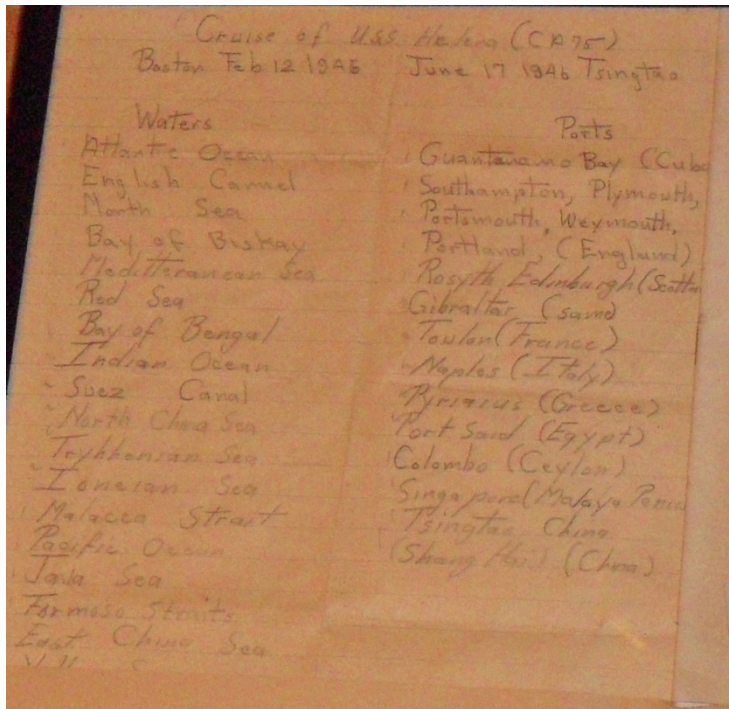 Cruise of U.S.S. Helena (CA 75)
Boston Feb 12 1946 June 17 1946 Tsingtao
Waters
Atlantic Ocean
English Cannel
North Sea
Bay of Biskay
Medittsranean Sea
Red Sea
Bay of Bengal
Indian Ocean
Suez Canal
North China Sea
Tryhhenian Sea
Ionesian Sea
Malacca Strait
Pacific Ocean
Java Sea
Formoso Straits
East China Sea
Ports
Guantanamo Bay (Cuba
Southampton, Plymouth,
Portsmouth, Weymouth,
Portland, (England)
Rosyth Edinburgh (Scotlan
Gibraltar (same)
Toulon (France)
Naples (Italy)
Pyriaeus (Greece)
Port Said (Egypt)
Colombo (Ceylon)
Singapore (Malaya
Tsingtao China
(Shang Hai) (China)